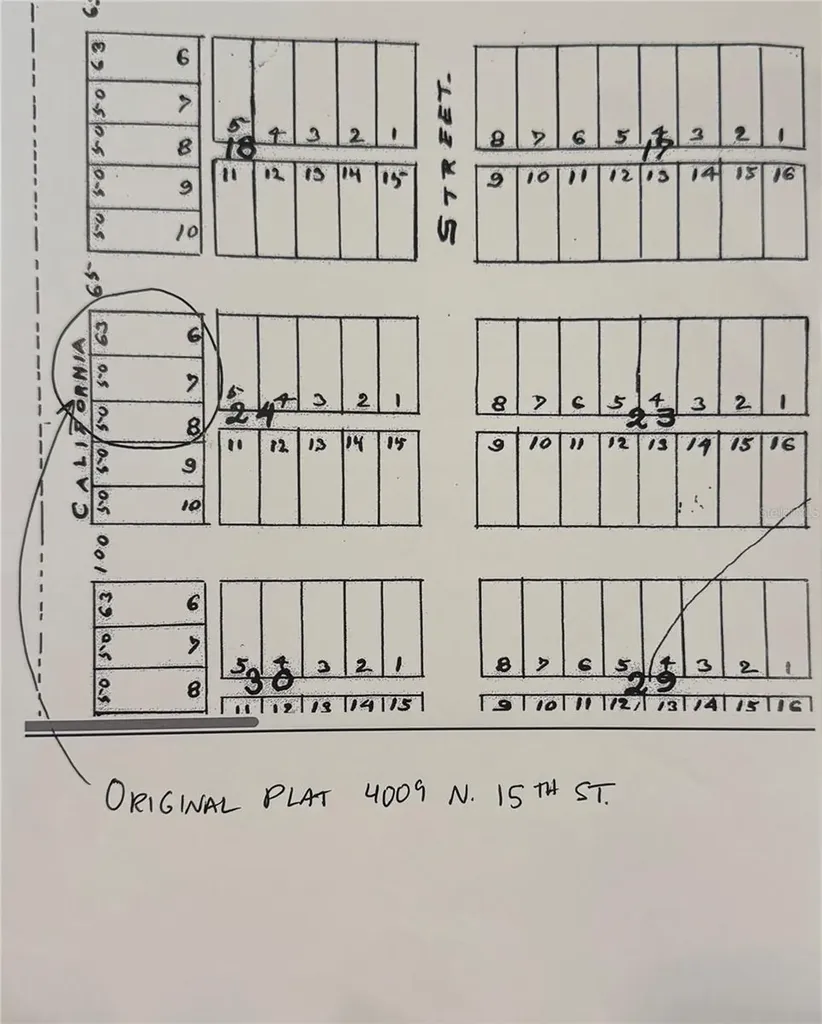 6
63 6
50 7
50 8
50 9
50 10
5 4 3 2 1
18
11 12 13 14 15
STREET.
8 7 6 5 4 3 2 1
17
9 10 11 12 13 14 15 16
65
CALIFORNIA
63 6
50 7
50 8
50 9
50 10
5 4 3 2 1
24
11 12 13 14 15
8 7 6 5 4 3 2 1
23
9 10 11 12 13 14 15 16
100
63 6
50 7
50 8
5 4 3 2 1
30
11 12 13 14 15
8 7 6 5 4 3 2 1
29
9 10 11 12 13 14 15 16
ORIGINAL PLAT 4009 N. 15TH ST.